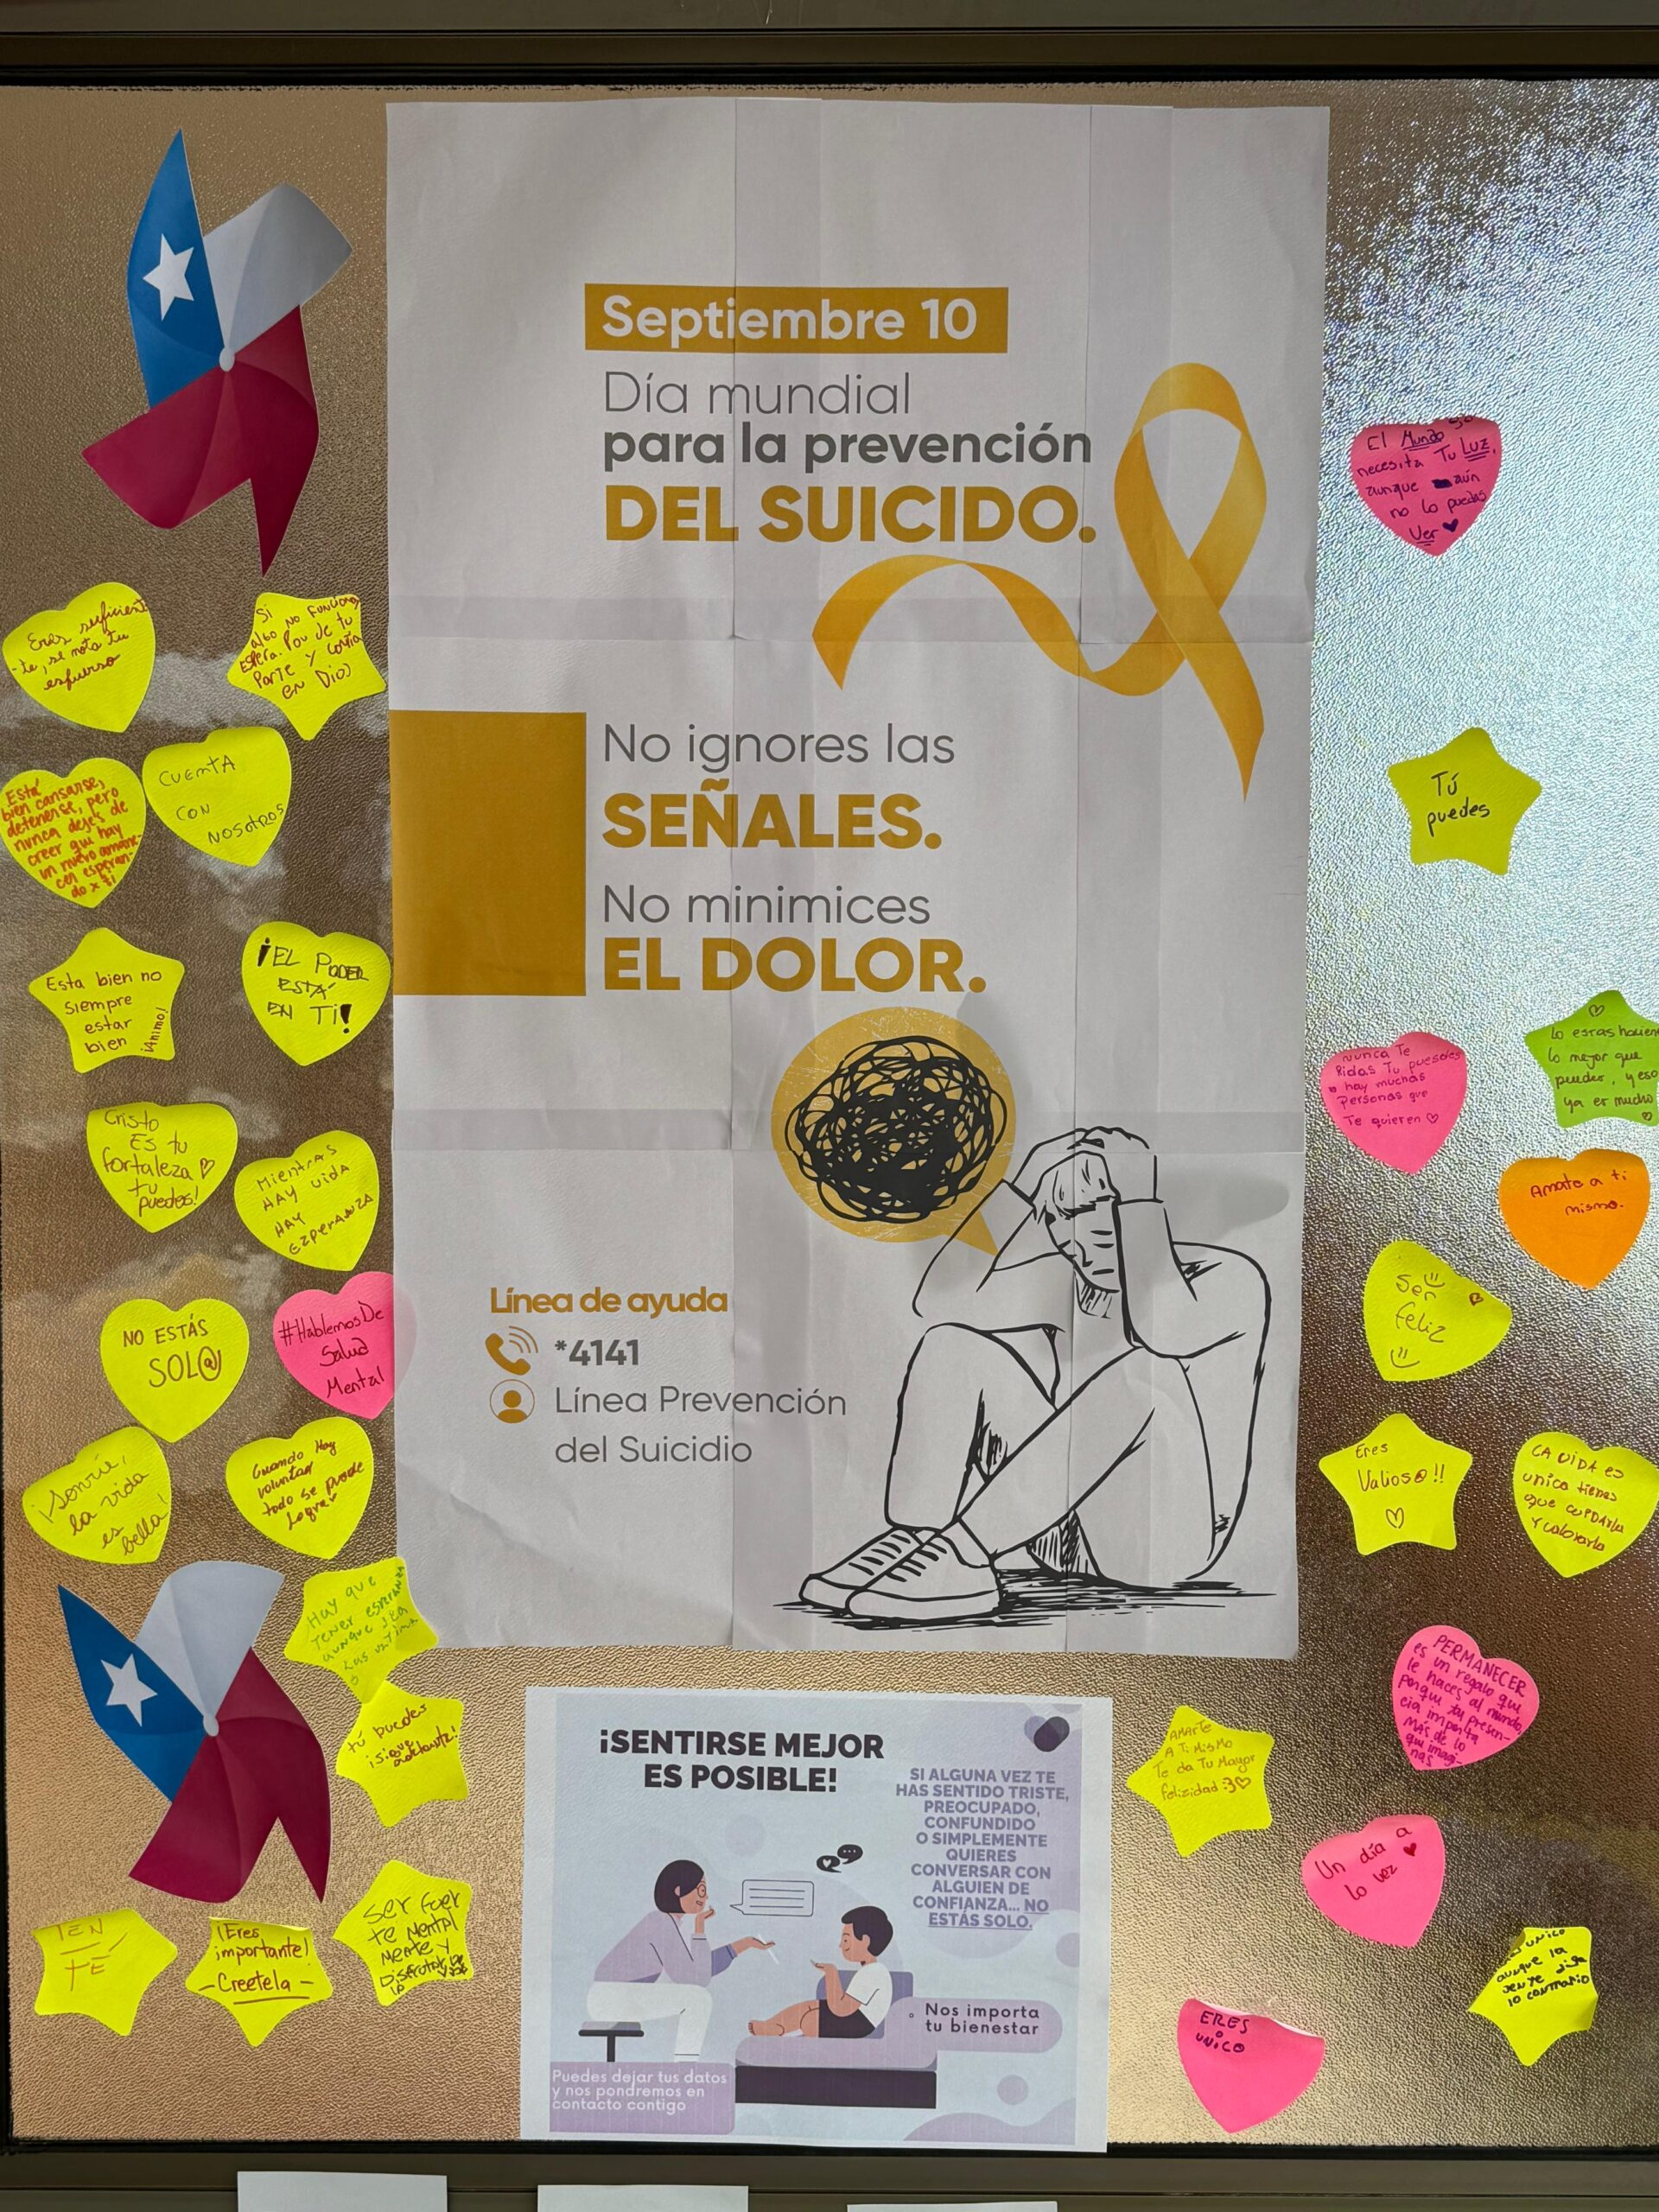 Septiembre 10
Día mundial
para la prevención
DEL SUICIDO.
No ignores las
SEÑALES.
No minimices
EL DOLOR.
Línea de ayuda
*4141
Línea Prevención
del Suicidio
Eres suficien
-te, se nota tu
esfuerso
Si
algo no funciona
Espera. Pon de tu
Parte y confía
en Dios
Está
bien cansarse,
detenerse, pero
nunca dejes de
creer que hay
un nuevo amane-
cer esperan-
do x ti
CUENTA
CON
NOSOTROS
Esta bien no
siempre
estar
bien
¡Animo!
¡EL PODER
ESTÁ
EN TI!
Cristo
Es tu
fortaleza
tu
puedes!
Mientras
HAY vida
HAY
EsperANZA
NO ESTÁS
SOL@
#HablemosDe
Salud
Mental
¡Sonríe,
la vida
es
bella!
Cuando Hay
voluntad
todo se puede
Lograr
Hay que
tener esperanza
aunque sea
Las ultima
tú puedes
¡sigue
adelante!
TEN
FE
¡Eres
importante!
- Creetela -
Ser fuer
te Mental
Mente y
Disfrutar la
El Mundo
necesita Tu Luz,
aunque aún
no lo puedas
Ver
Tú
puedes
Nunca Te
Ridas Tu puesdes
hay muchas
Personas que
Te quieren
Lo estas hacien
lo mejor que
puedes, y eso
ya es mucho
Amate a ti
mismo.
Ser
feliz
Eres
Valios@!!
LA VIDA es
unica tienes
que cuidarla
y valorarla
PERMANECER
es un regalo que
le haces al mundo,
porque tu presen-
cia importa
MÁS de lo
que imagi-
nas
AMARTE
A Ti MisMo
Te da Tu Mayor
felizidad :3
Un día a
la vez
unico
aunque la
jente diga
lo contrario
ERES
UNICO
¡SENTIRSE MEJOR
ES POSIBLE!
SI ALGUNA VEZ TE
HAS SENTIDO TRISTE,
PREOCUPADO,
CONFUNDIDO
O SIMPLEMENTE
QUIERES
CONVERSAR CON
ALGUIEN DE
CONFIANZA... NO
ESTÁS SOLO.
Nos importa
tu bienestar
Puedes dejar tus datos
y nos pondremos en
contacto contigo